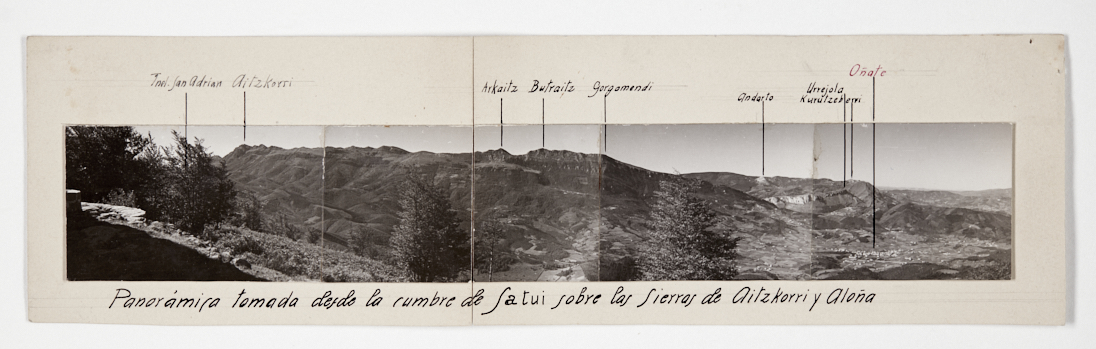 Oñate
Tnel. San Adrian Aitzkorri
Arkaitz Butraitz Gorgomendi
Andarto
Urrejola
Kurutzekorri
Panorámica tomada desde la cumbre de Satui sobre las Sierras de Aitzkorri y Aloña